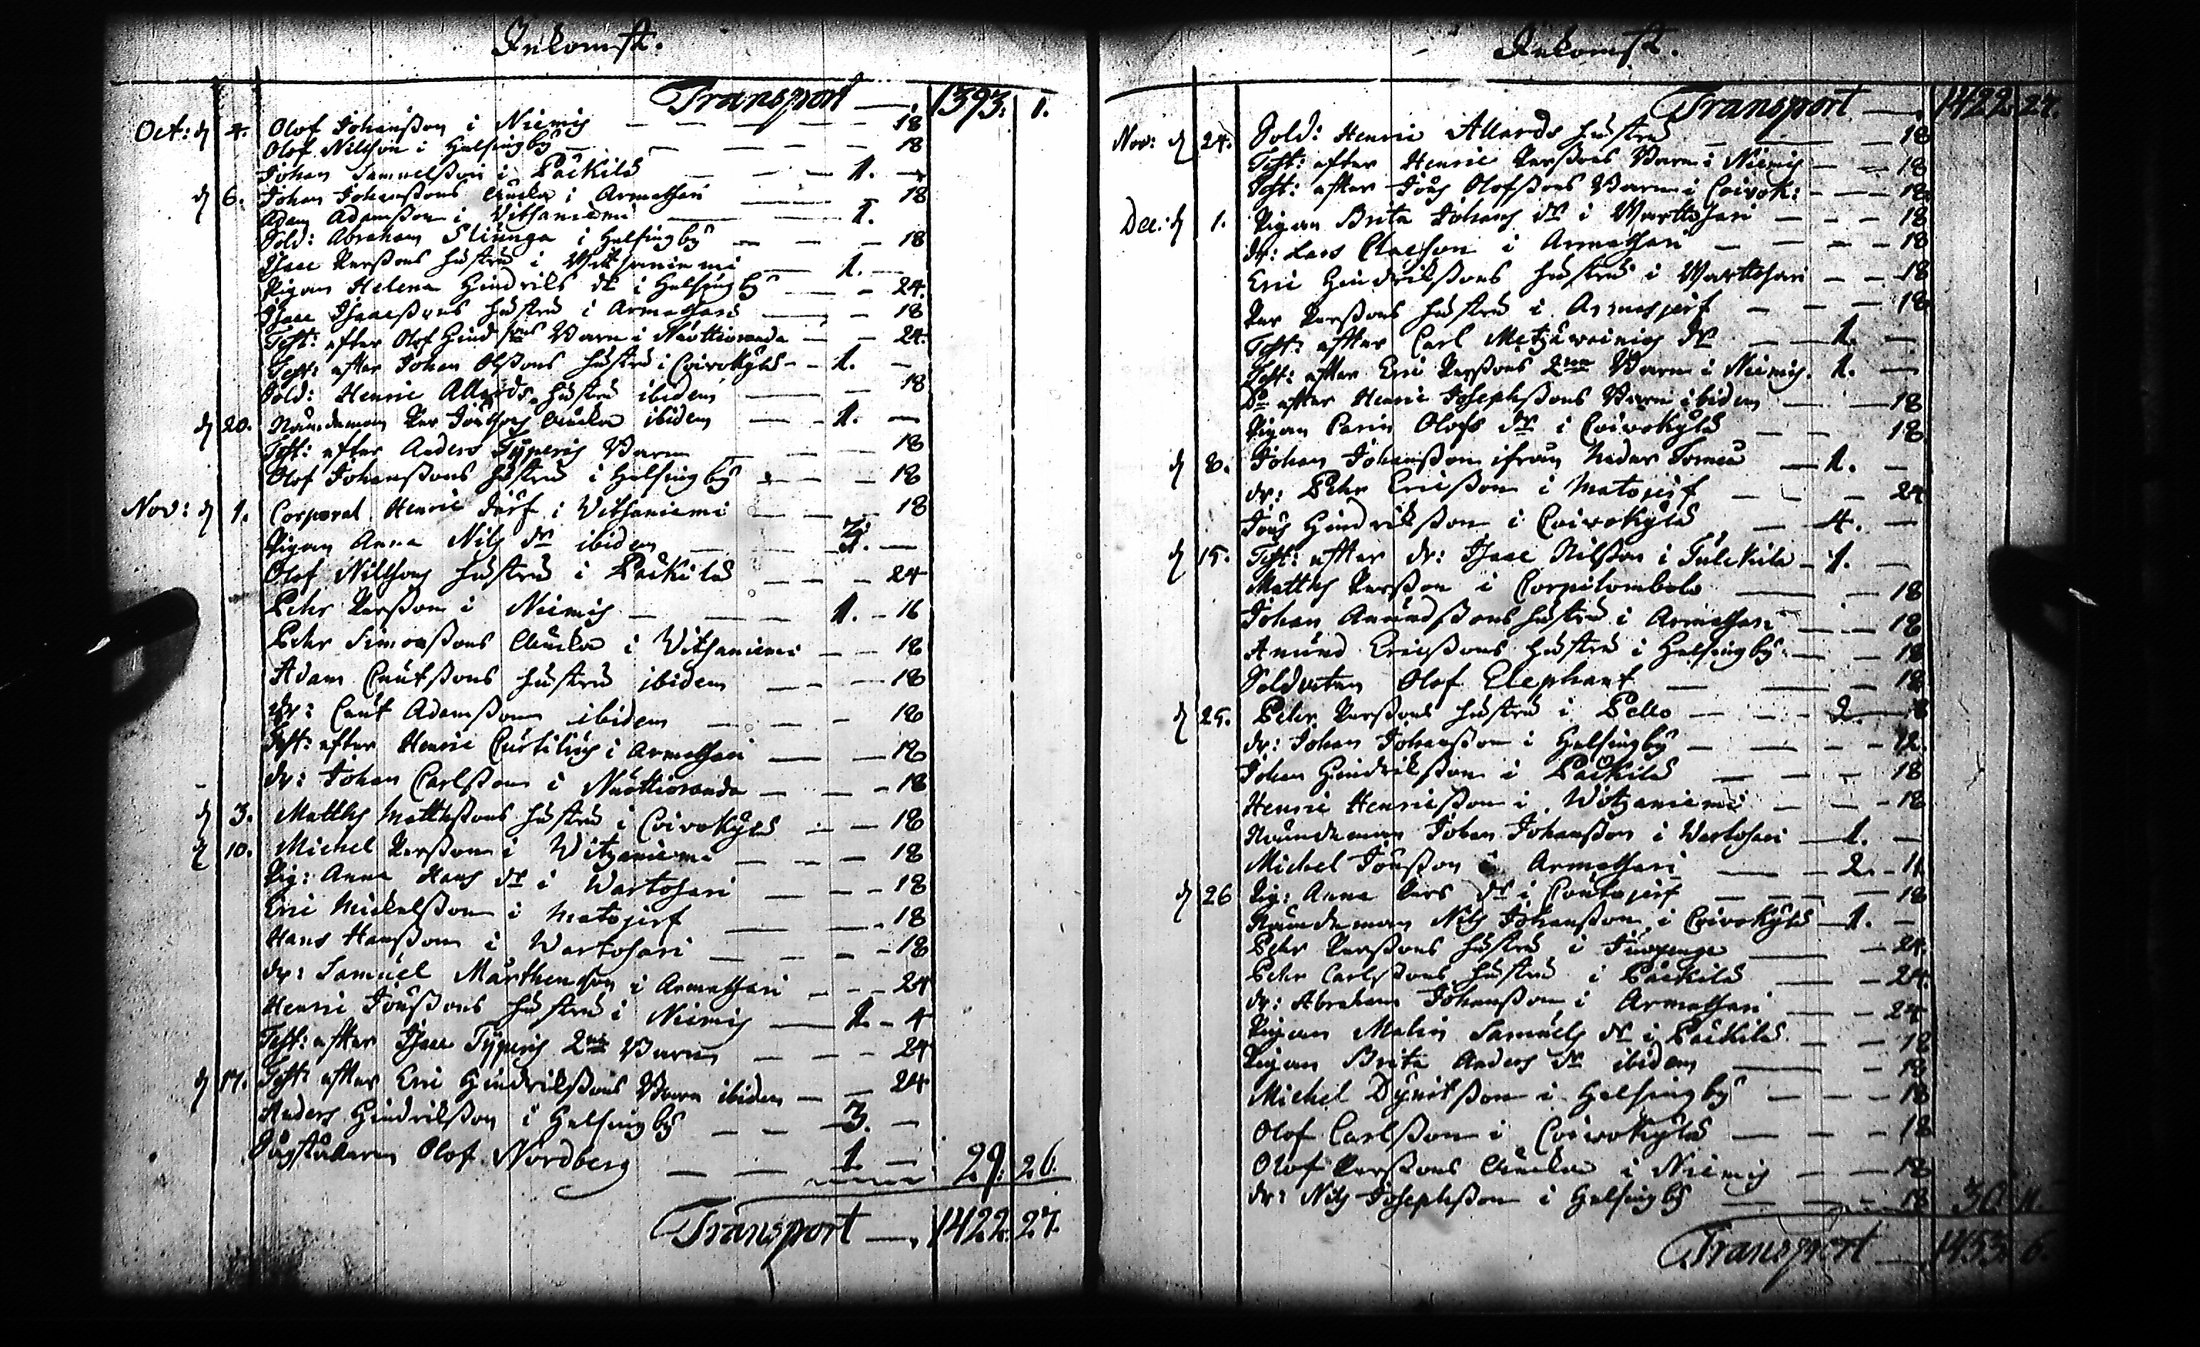 Inkomst.
Transport —. 1393. 1.
Oct: d 4. Olof Johansson i Niemis — — — 18
Olof Nilsson i Helsingby — — — 18
Johan Samuelsson i Päckilä — — 1. —
d 6. Johan Johanssons Änka i Armassari 18
Adam Adamsson i Witsaniemi — 1.
Sold: Abraham Sliunga i Helsingby — — 18
Isaac Perssons hustru i Wittsaniemi — 1. —
Pigan Helena Hindriks dr i Helsingby — — 24.
Isaac Isaacssons hustru i Armassari — — 18
Test: efter Olof Hindssons Barn i Nuottioranda — — 24.
Test: efter Johan Olssons hustru i Coivokylä — 1. —
Sold: Henric Allards hustru ibidem — — 18
d 20. Nämdeman Per Jönssons Änka ibidem — 1. —
Test: efter Anders Typpris Barn — — 18
Olof Johanssons hustru i Helsingby — — 18
Nov: d 1. Corporal Henric Järf i Witsaniemi — — 18
Pigan Anna Nils dr ibidem — 3. —
Olof Nilssons hustru i Päckilä — — 24
Pehr Persson i Niemis — — 1. — 16
Pehr Simonssons Änka i Witsaniemi — — 18
Adam Cnutssons hustru ibidem — — 18
dr: Cnut Adamsson ibidem — — 18
Test: efter Henric Curtilius i Armassari — — 18
dr: Johan Carlsson i Nuottioranda — — 18
d 3. Matths Matthssons hustru i Coivokylä — — 18
d 10. Michel Persson i Witzaniemi — — 18
Pig: Anna Hans dr i Wartosari — — 18
Eric Mickelsson i Matojerf — — 18
Hans Hansson i Wartosari — — 18
dr: Samuel Mårthensson i Armassari — — 24
Henric Jönssons hustru i Niemis — 1. — 4
Test: efter Isaac Typpris 2ne Barn — — 24
d 17. Test: efter Eric Hindrikssons Barn ibidem — — 24
Anders Hindriksson i Helsingby — — 3. —
Olof Nordberg — — 1. — 29. 26.
Transport —. 1422. 27.
Inkomst.
Transport —. 1422. 27.
Nov: d 24. Sold: Henric Allards hustru — 18
Test: efter Henric Perssons Barn i Niemis — 18
Test: efter Jöns Olofssons Barn i Coivok: — — 18.
Dec: d 1. Pigan Brita Johans dr i Warttosari — — 18
dr: Lars Claesson i Armassari — — 18
Eric Hindrikssons hustru i Warttosari — — 18
Per Perssons hustru i Armasjerf — — 18
Test: efter Carl Metzäwainios dr — 1. —
Test: efter Eric Perssons 2ne Barn i Niemis. 1. —
Do efter Henric Josephssons Barn ibidem — — 18
Pigan Carin Olofs dr i Coivokylä — — 18
d 8. Johan Johansson ifrån Neder Torneå — 1. —
dr: Pehr Ericsson i Matojerf — — 24
Jöns Hindriksson i Coivokylä — 4. —
d 15. Test: efter dr: Isaac Nilsson i Tulckila — 1. —
Matths Persson i Corpilombolo — — 18
Johan Amundssons hustru i Armassari — — 18
Amund Ericssons hustru i Helsingby — — 18
Soldaten Olof Elephant — — 18
d 25. Pehr Perssons hustru i Pello — — 2. — 8
dr: Johan Johansson i Helsingby — — 12.
Johan Hindriksson i Päckilä — — 18
Henric Henricsson i Witzaniemi — — 18
Nämdeman Johan Johansson i Wartosari — 1. —
Michel Jönsson i Armassari — 2. — 11
d 26 Pig: Anna Pers dr i Coutojerf — — 18
Nämdeman Nils Johansson i Coivokylä — 1. —
Pehr Perssons hustru i — 24.
Pehr Carlssons hustru i Päckilä — — 24.
dr: Abraham Johansson i Armassari — — 24
Pigan Malin Samuels dr i Päckilä — — 18
Pigan Brita Anders dr ibidem — — 18
Michel Dynisson i Helsingby — — 18
Olof Carlsson i Coivokylä — — 18
Olof Perssons Änka i Niemis — — 18
dr: Nils Josephsson i Helsingby — — 18 30. 11.
Transport —. 1453. 6.